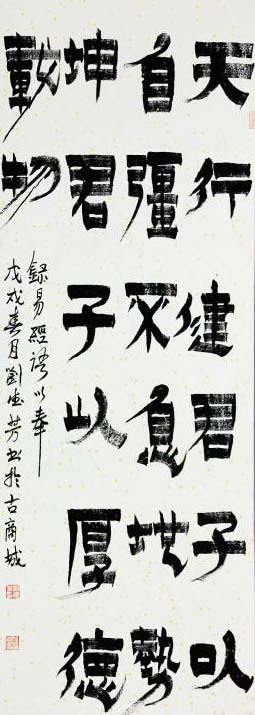 天行健君子以
自彊不息地勢
坤君子以厚德
載物
錄易經語以奉
戊戌春月劉芳书於古商城